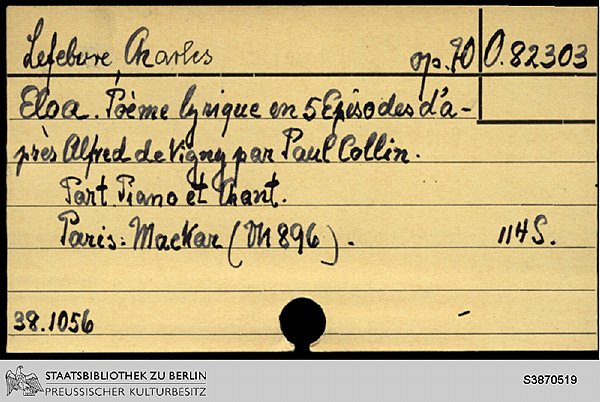 Lefebvre, Charles op. 70 O. 82303
Eloa. Poème lyrique en 5 Episodes d'a-
près Alfred de Vigny par Paul Collin.
Part. Piano et Chant.
Paris: Mackar (
896). 114 S.
38.1056
STAATSBIBLIOTHEK ZU BERLIN
PREUSSISCHER KULTURBESITZ
S3870519